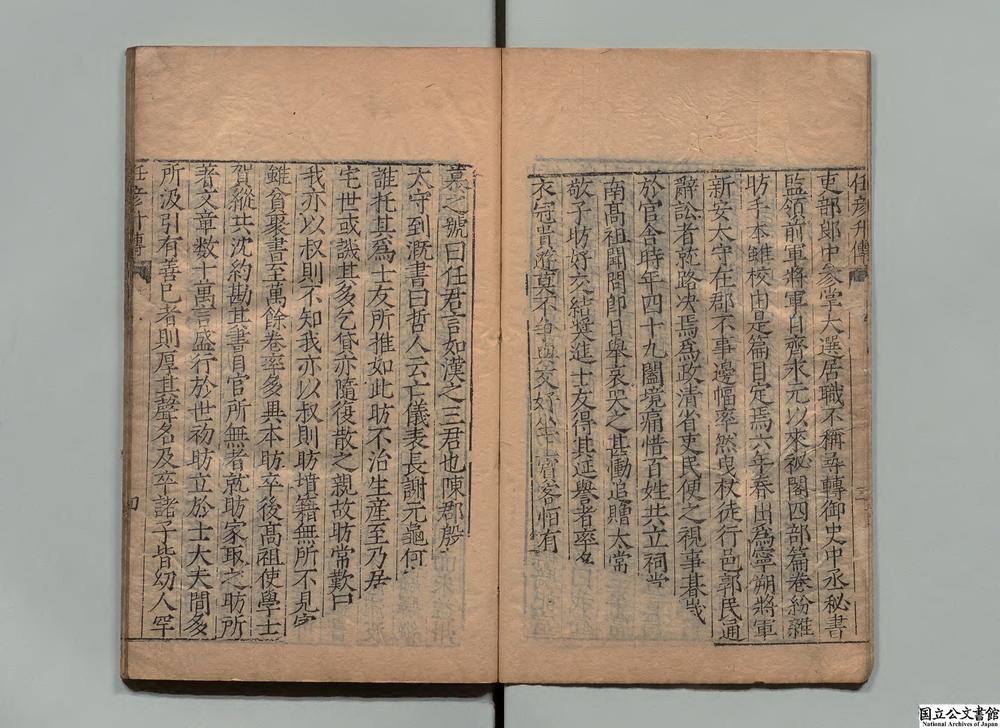 任彦升傳
吏部郎中參掌大選居職不稱尋轉御史中丞秘書
監領前軍將軍自齊永元以來秘閣四部篇卷紛雜
昉手本雖校由是篇目定焉六年春出爲寧朔將軍
新安太守在郡不事邊幅率然曳杖徒行邑郭民通
辭訟者就路决焉爲政清省吏民便之視事朞歲
於官舎時年四十九闔境痛惜百姓共立祠堂
南高祖聞問即日舉哀哭之甚慟追贈太常
敬子昉好交結奬進士友得其延譽者率多
衣冠貴遊莫不爭與交好坐賓客恒有
慕之號曰任君言如漢之三君也陳郡殷
太守到溉書曰哲人云亡儀表長謝元龜何
誰托其爲士友所推如此昉不治生産至乃居
宅世或譏其多乞貸亦隨復散之親故昉常歎曰
我亦以叔則不知我亦以叔則昉墳籍無所不見家
雖貧聚書至萬餘卷率多異本昉卒後高祖使學士
賀縱共沈約勘其書目官所無者就昉家取之昉所
著文章數十萬言盛行於世初昉立於士大夫間多
所汲引有善已者則厚其聲名及卒諸子皆幼人罕
任彦升傳
四
国立公文書館
National Archives of Japan